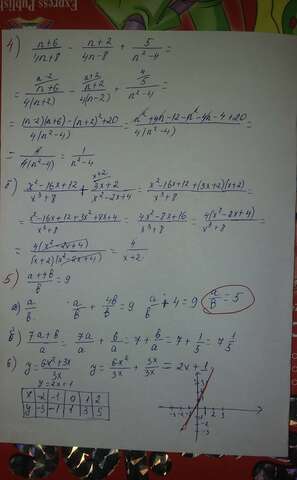 Express Publis
4) (n+6)/(4n+8) - (n+2)/(4n-8) + 5/(n²-4) =
= (n+6)/(4(n+2)) - (n+2)/(4(n-2)) + 5/(n²-4) =
= ((n-2)(n+6)-(n+2)²+20)/(4(n²-4)) = (n²+4n-12-n²-4n-4+20)/(4(n²-4)) =
= 4/(4(n²-4)) = 1/(n²-4)
(x²-16x+12)/(x³+8) + (3x+2)/(x²-2x+4) = (x²-16x+12+(3x+2)(x+2))/(x³+8) =
= (x²-16x+12+3x²+8x+4)/(x³+8) = (4x²-8x+16)/(x³+8) = (4(x²-2x+4))/(x³+8) =
= (4(x²-2x+4))/((x+2)(x²-2x+4)) = 4/(x+2)
5) (a+4b)/b = 9
a) a/b a/b + 4b/b = 9 a/b + 4 = 9 a/b = 5
б) (7a+b)/a = 7a/a + b/a = 7 + b/a = 7 + 1/5 = 7 1/5
6) y = (6x²+3x)/3x y = 6x²/3x + 3x/3x = 2x+1
y = 2x+1
x -2 -1 0 1 2
y -3 -1 1 3 5